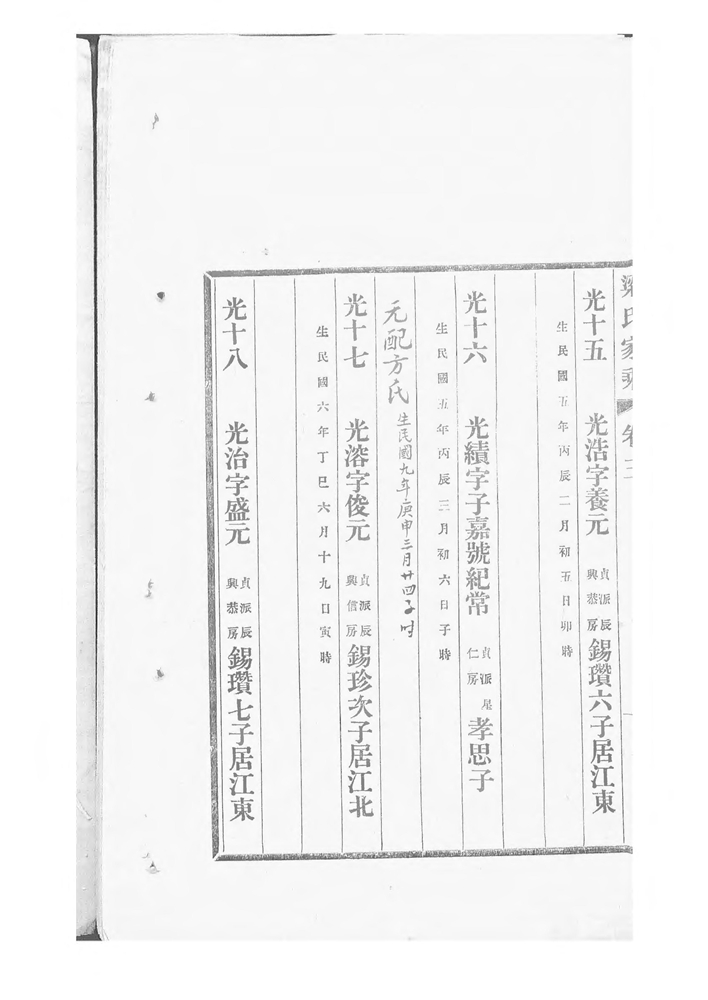 梁氏家乘 卷三
光十五 光浩字養元 貞派辰興恭房 錫瓚六子居江東
生民國五年丙辰二月初五日卯時
光十六 光績字子嘉號紀常 貞派星仁房 孝思子
生民國五年丙辰三月初六日子時
元配方氏 生民國九年庚申三月廿四子时
光十七 光溶字俊元 貞派辰興信房 錫珍次子居江北
生民國六年丁巳六月十九日寅時
光十八 光治字盛元 貞派辰興恭房 錫瓚七子居江東